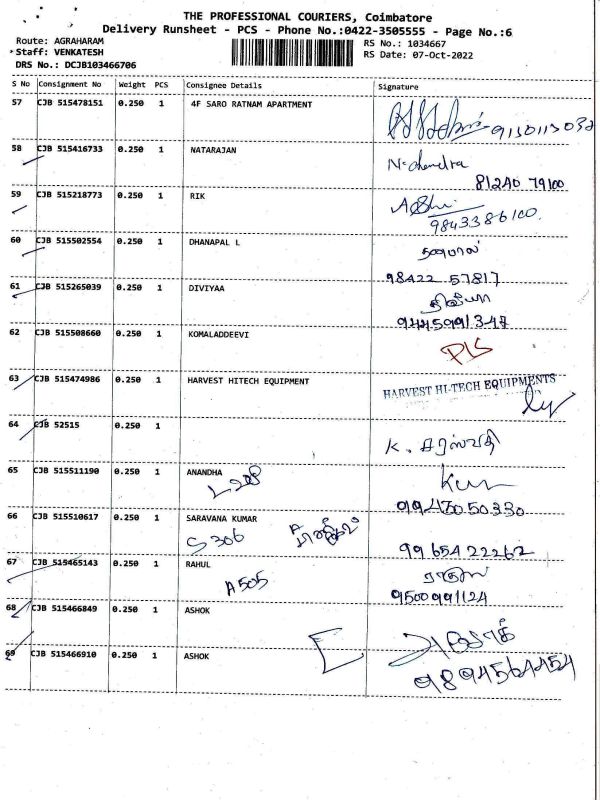 THE PROFESSIONAL COURIERS, Coimbatore
Delivery Runsheet - PCS - Phone No.:0422-3505555 - Page No.:6
Route: AGRAHARAM
RS No.: 1034667
Staff: VENKATESH
RS Date: 07-Oct-2022
DRS No.: DCJB103466706
S No Consignment No Weight PCS Consignee Details Signature
57 CJB 515478151 0.250 1 4F SARO RATNAM APARTMENT
58 CJB 515416733 0.250 1 NATARAJAN
81240 79100
59 CJB 515218773 0.250 1 RIK
9843386100
60 CJB 515502554 0.250 1 DHANAPAL L தனபால்
98422 57817
61 CJB 515265039 0.250 1 DIVIYAA திவ்யா
9445991347
62 CJB 515508660 0.250 1 KOMALADDEEVI
63 CJB 515474986 0.250 1 HARVEST HITECH EQUIPMENT HARVEST HI-TECH EQUIPMENTS
64 CJB 52515 0.250 1
K. சரஸ்வதி
65 CJB 515511190 0.250 1 ANANDHA
99430 50330
66 CJB 515510617 0.250 1 SARAVANA KUMAR
S 306
99654 22262
67 CJB 515465143 0.250 1 RAHUL
A 505
9500991124
68 CJB 515466849 0.250 1 ASHOK
69 CJB 515466910 0.250 1 ASHOK
9894564454